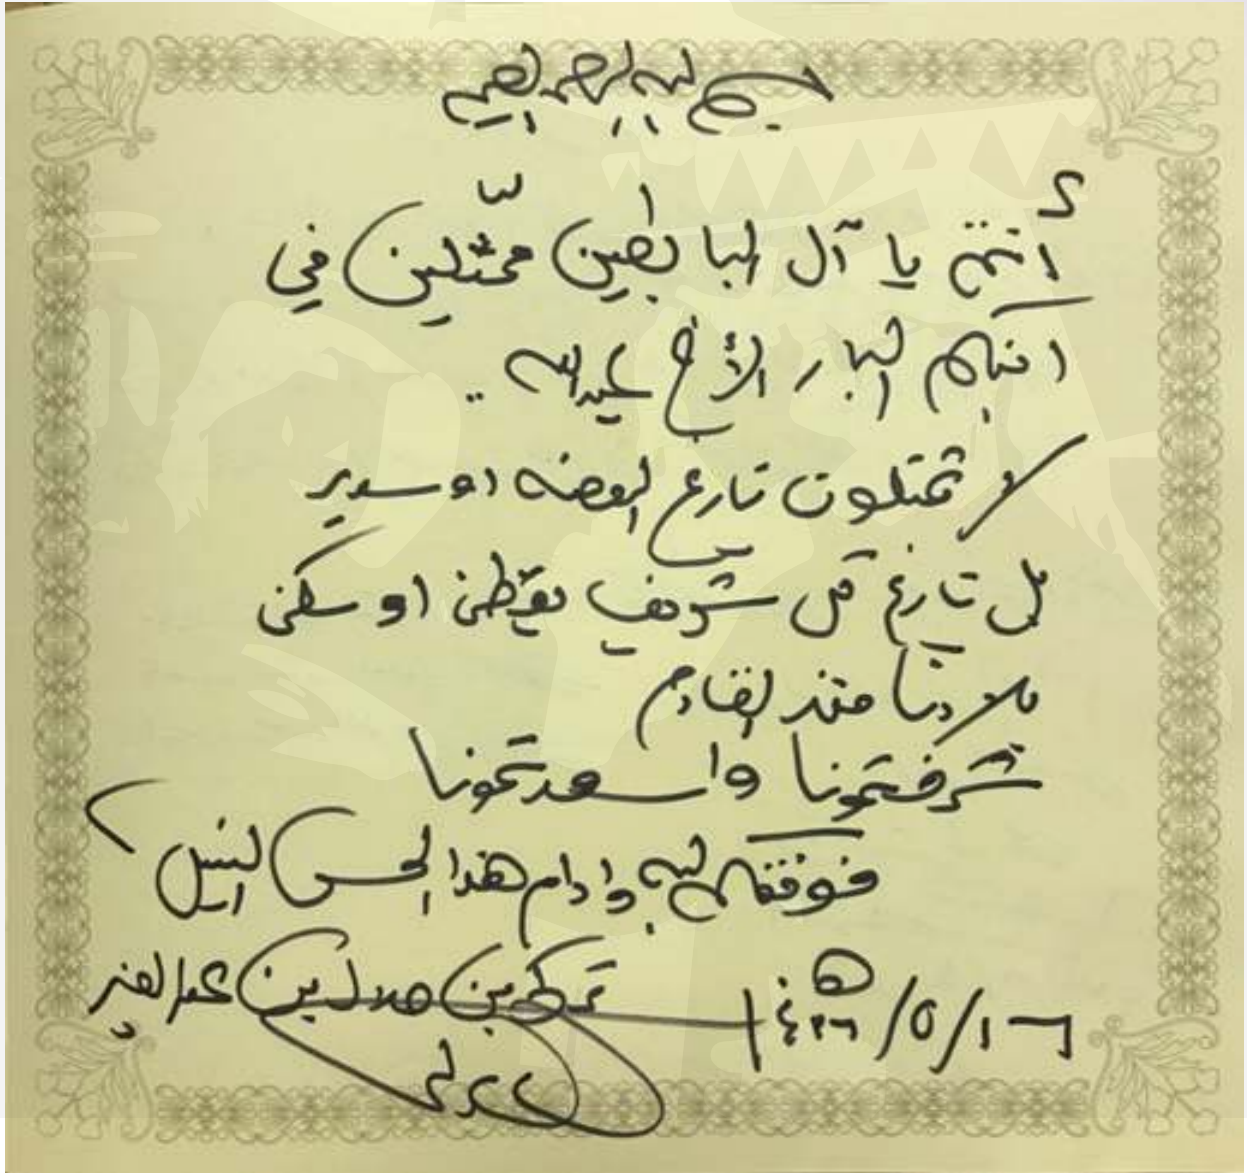 بسم الله الرحمن الرحيم
أنتم يا آل البابطين ممثلين في
ابنكم البار الأخ عبدالله ..
لا تمثلون تاريخ الروضه او سدير
بل تاريخ كل شريف يقطن او سكن
بلادنا منذ القادم
شرفتمونا واسعدتمونا
فوفقكم الله وادام هذا الحس النبيل
تركي بن طلال بن عبدالعزيز
١٦/٥/١٤٣٦هـ